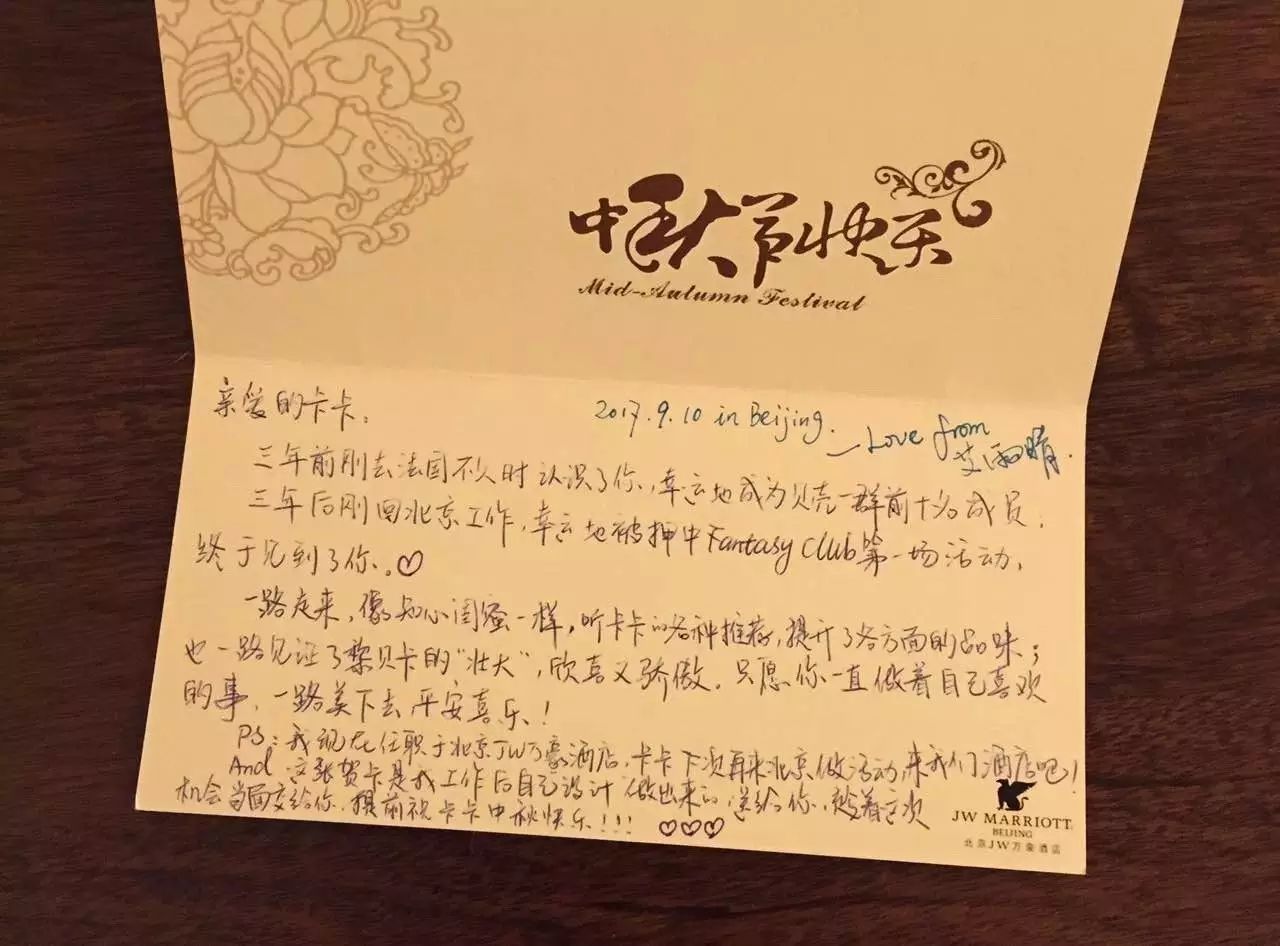 中秋节快乐
Mid-Autumn Festival
亲爱的卡卡。
2017.9.10 in Beijing.
—Love from
艾雨晴.
三年前刚去法国不久时认识了你,幸运地成为贝壳一群前十名成员.
三年后刚回北京工作,幸运地被抽中Fantasy Club第一场活动.
终于见到了你。♡
一路走来,像知心闺蜜一样,听卡卡的各种推荐,提升了各方面的品味;
也一路见证了黎贝卡的“壮大”,欣喜又骄傲。只愿你一直做着自己喜欢
的事,一路美下去,平安喜乐!
PS:我现在任职于北京JW万豪酒店,卡卡下次再来北京做活动,来我们酒店吧!
And 这张贺卡是我工作后自己设计做出来的,送给你,趁着这次
机会当面交给你.提前祝卡卡中秋快乐!!! ♡♡♡
JW MARRIOTT
BEIJING
北京JW万豪酒店